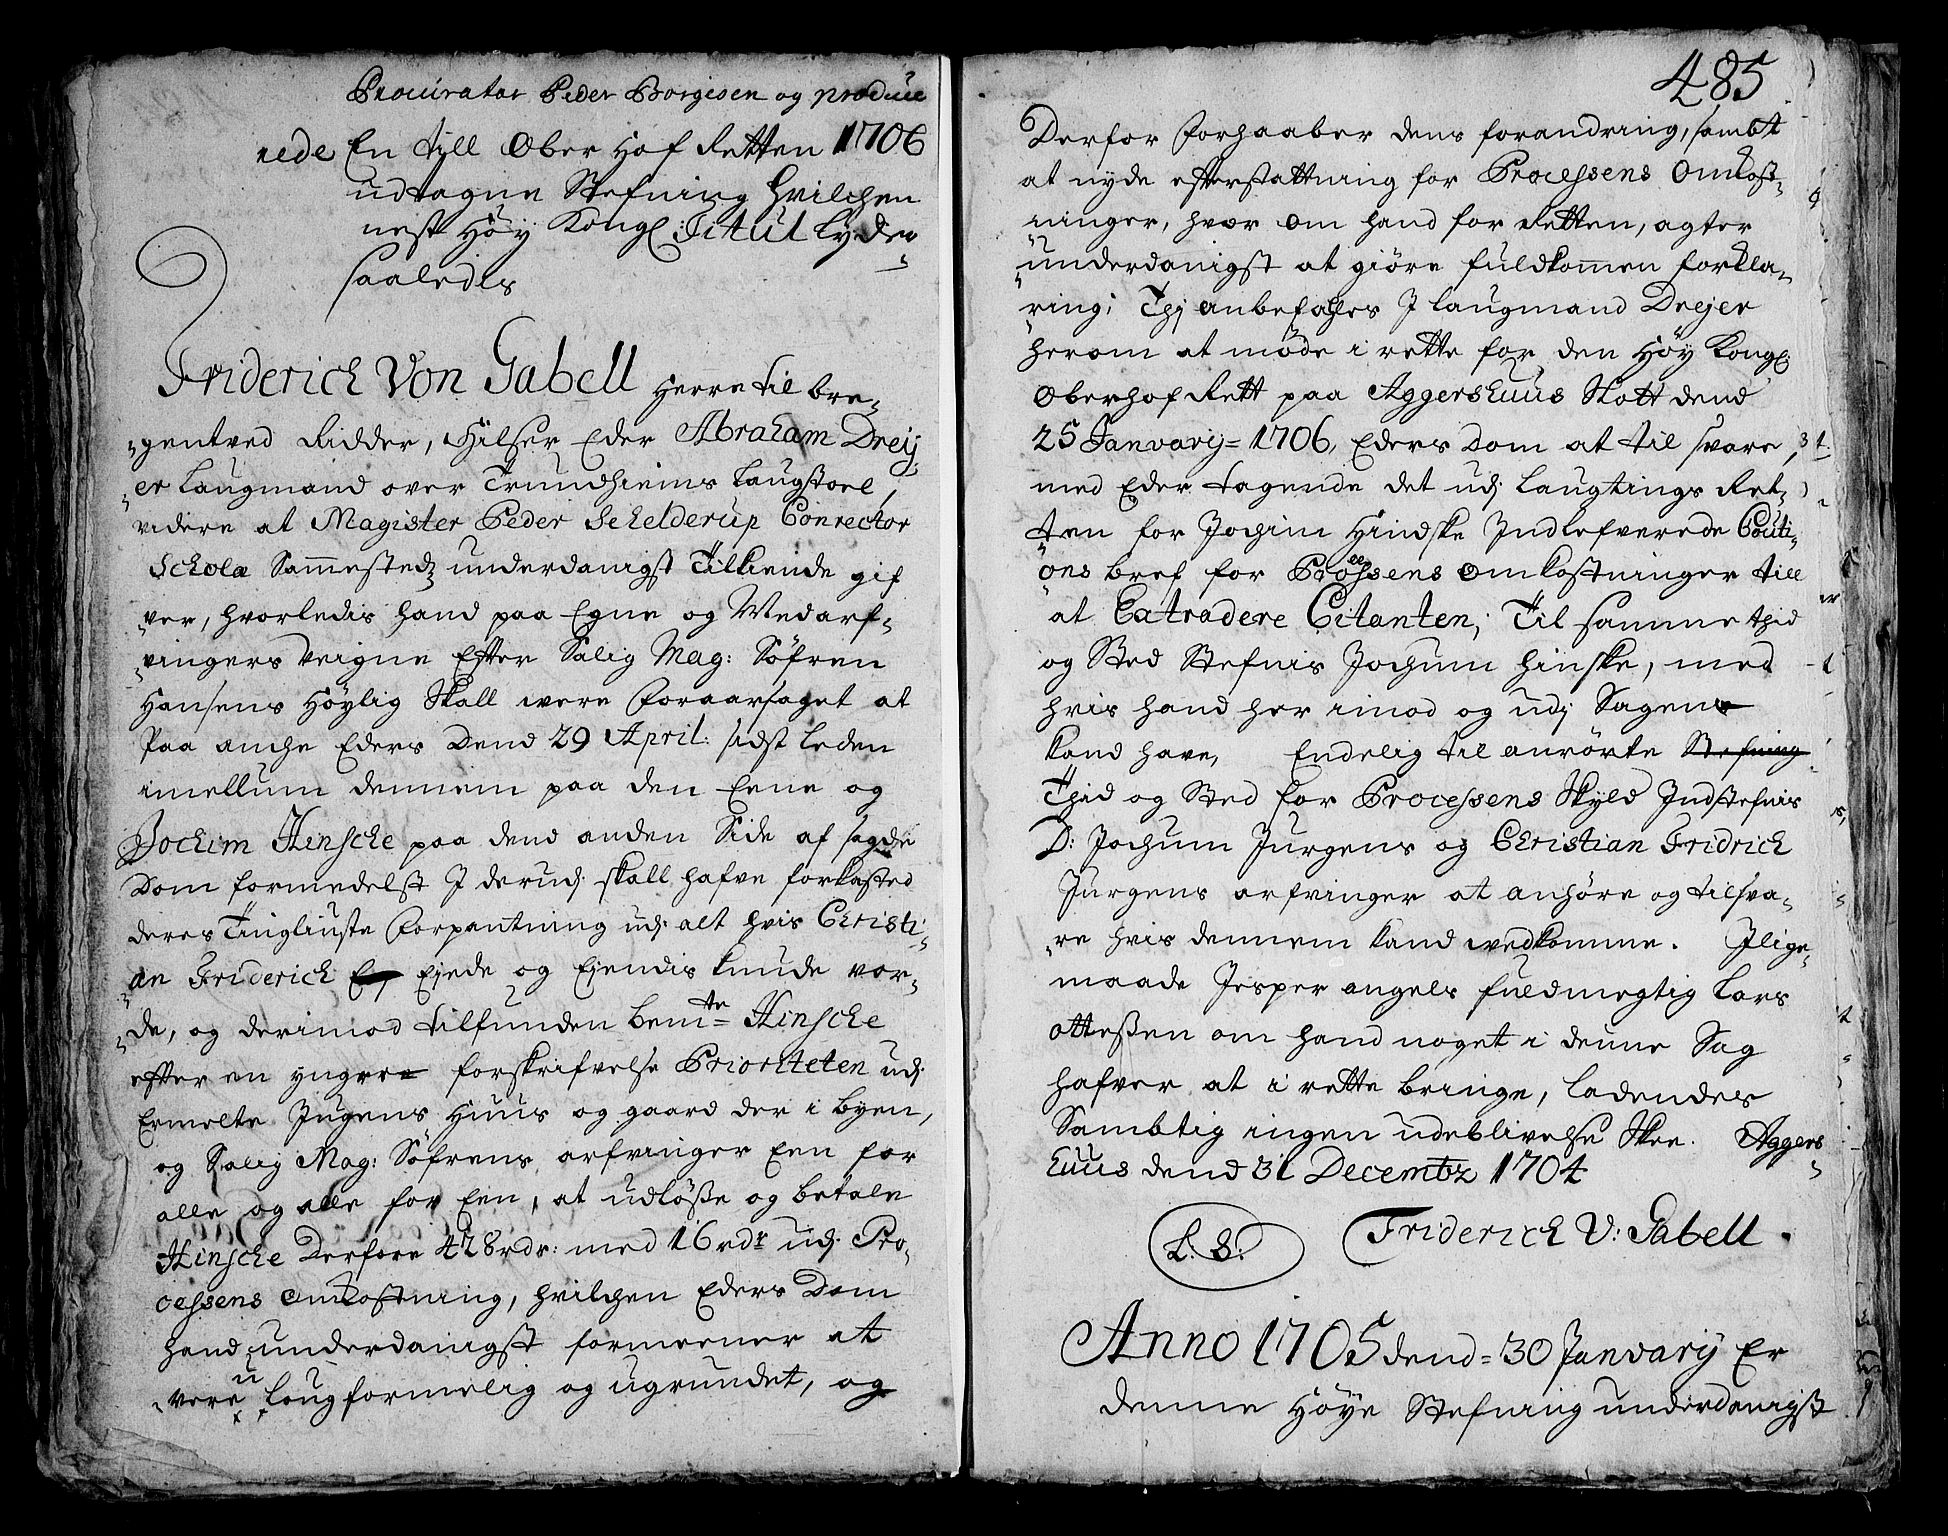 Procurator Peder Borgesen og produce
rede En till Ober Hof Retten 1706
udtagne Stefning hvilchen
nest Høy Kongl: Titul lyder
saaledis
Friderich Von Gabell Herre til bre„
„gentved Ridder, Hilser Eder Abraham Dreij„
„er Laugmand over Trundhiems Laugstoel,
videre at Magister Peder Schelderup Conrector
Schola Sammestedz underdanigst Tilkiende gif
„ver, hvorledis hand paa Egne og Medarf„
„vingers veigne Efter Salig Mag: Söfren
Hansens Høylig Skall were foraarsaget at
Paa anche Eders Dend 29 April: sidst leden
imellum dennem paa den Eene og
Jochim Hinsche paa dend anden Side af sagde
Dom formedelst J derudj skall hafve forkasted
deres Tingliuste Forpantning udj alt hvis Christi„
„an Friderich Ejede og Ejendis kunde vor„
„de, og derimod tilfunden bemte Hinsche
efter en yngre forskrifvelse Prioriteten udj
Ermelte Jugens Huus og gaard der i byen,
og Salig Mag: Söfrens arfvinger Een for
alle og alle for Een, at udløsse og betale
Hinsche Derfore 428 rdr: med 16 rdr udj Pro„
cessens omkostning, hvilchen Eders Dom
hand underdanigst formeener at
„vere u Laugformelig og ugrundet, og
485
Derfor forhaaber dens forandring, sambt
at nyde efterstattning for Processens omkost„
„ninger, hvor om hand for Retten, agter
underdanigst at giöre fuldkommen forkla„
„ring; Thj anbefalles J laugmand Drejer
herom at møde i rette for den Høy Kongl
Oberhof Rett paa Aggershuus Slott dend
25 Janvarij = 1706, Eders Dom at til svare,
med Eder tagende det udj laugtings Ret„
„ten for Jochim Hindske Indlefverede Cauti„
„ons bref for Processens omkostninger till
at Extradere Citanten; Til samme thid
og Sted Stefnis Jochum Hinske, med
hvis hand her imod og udj Sagen
kand have, Endelig til anrørte Stefning
Thid og Sted for Processens Skyld Indstefnis
D: Jochum Jurgens og Christian Fridrich
Jurgens arfvinger at anhöre og tilsva„
„re hvis dennem kand vedkomme. Jlige„
maade Jesper angels fuldmegtig Lars
ottessen om hand noget i denne Sag
hafver at i rette bringe, ladendes
Sambtlig ingen udeblivelse Skee. Aggers
huus dend 31 Decembr 1704
L. S. Friderich V: Gabell.
Anno 1705 dend = 30 Janvarij Er
denne Høye Stefning underdanigst